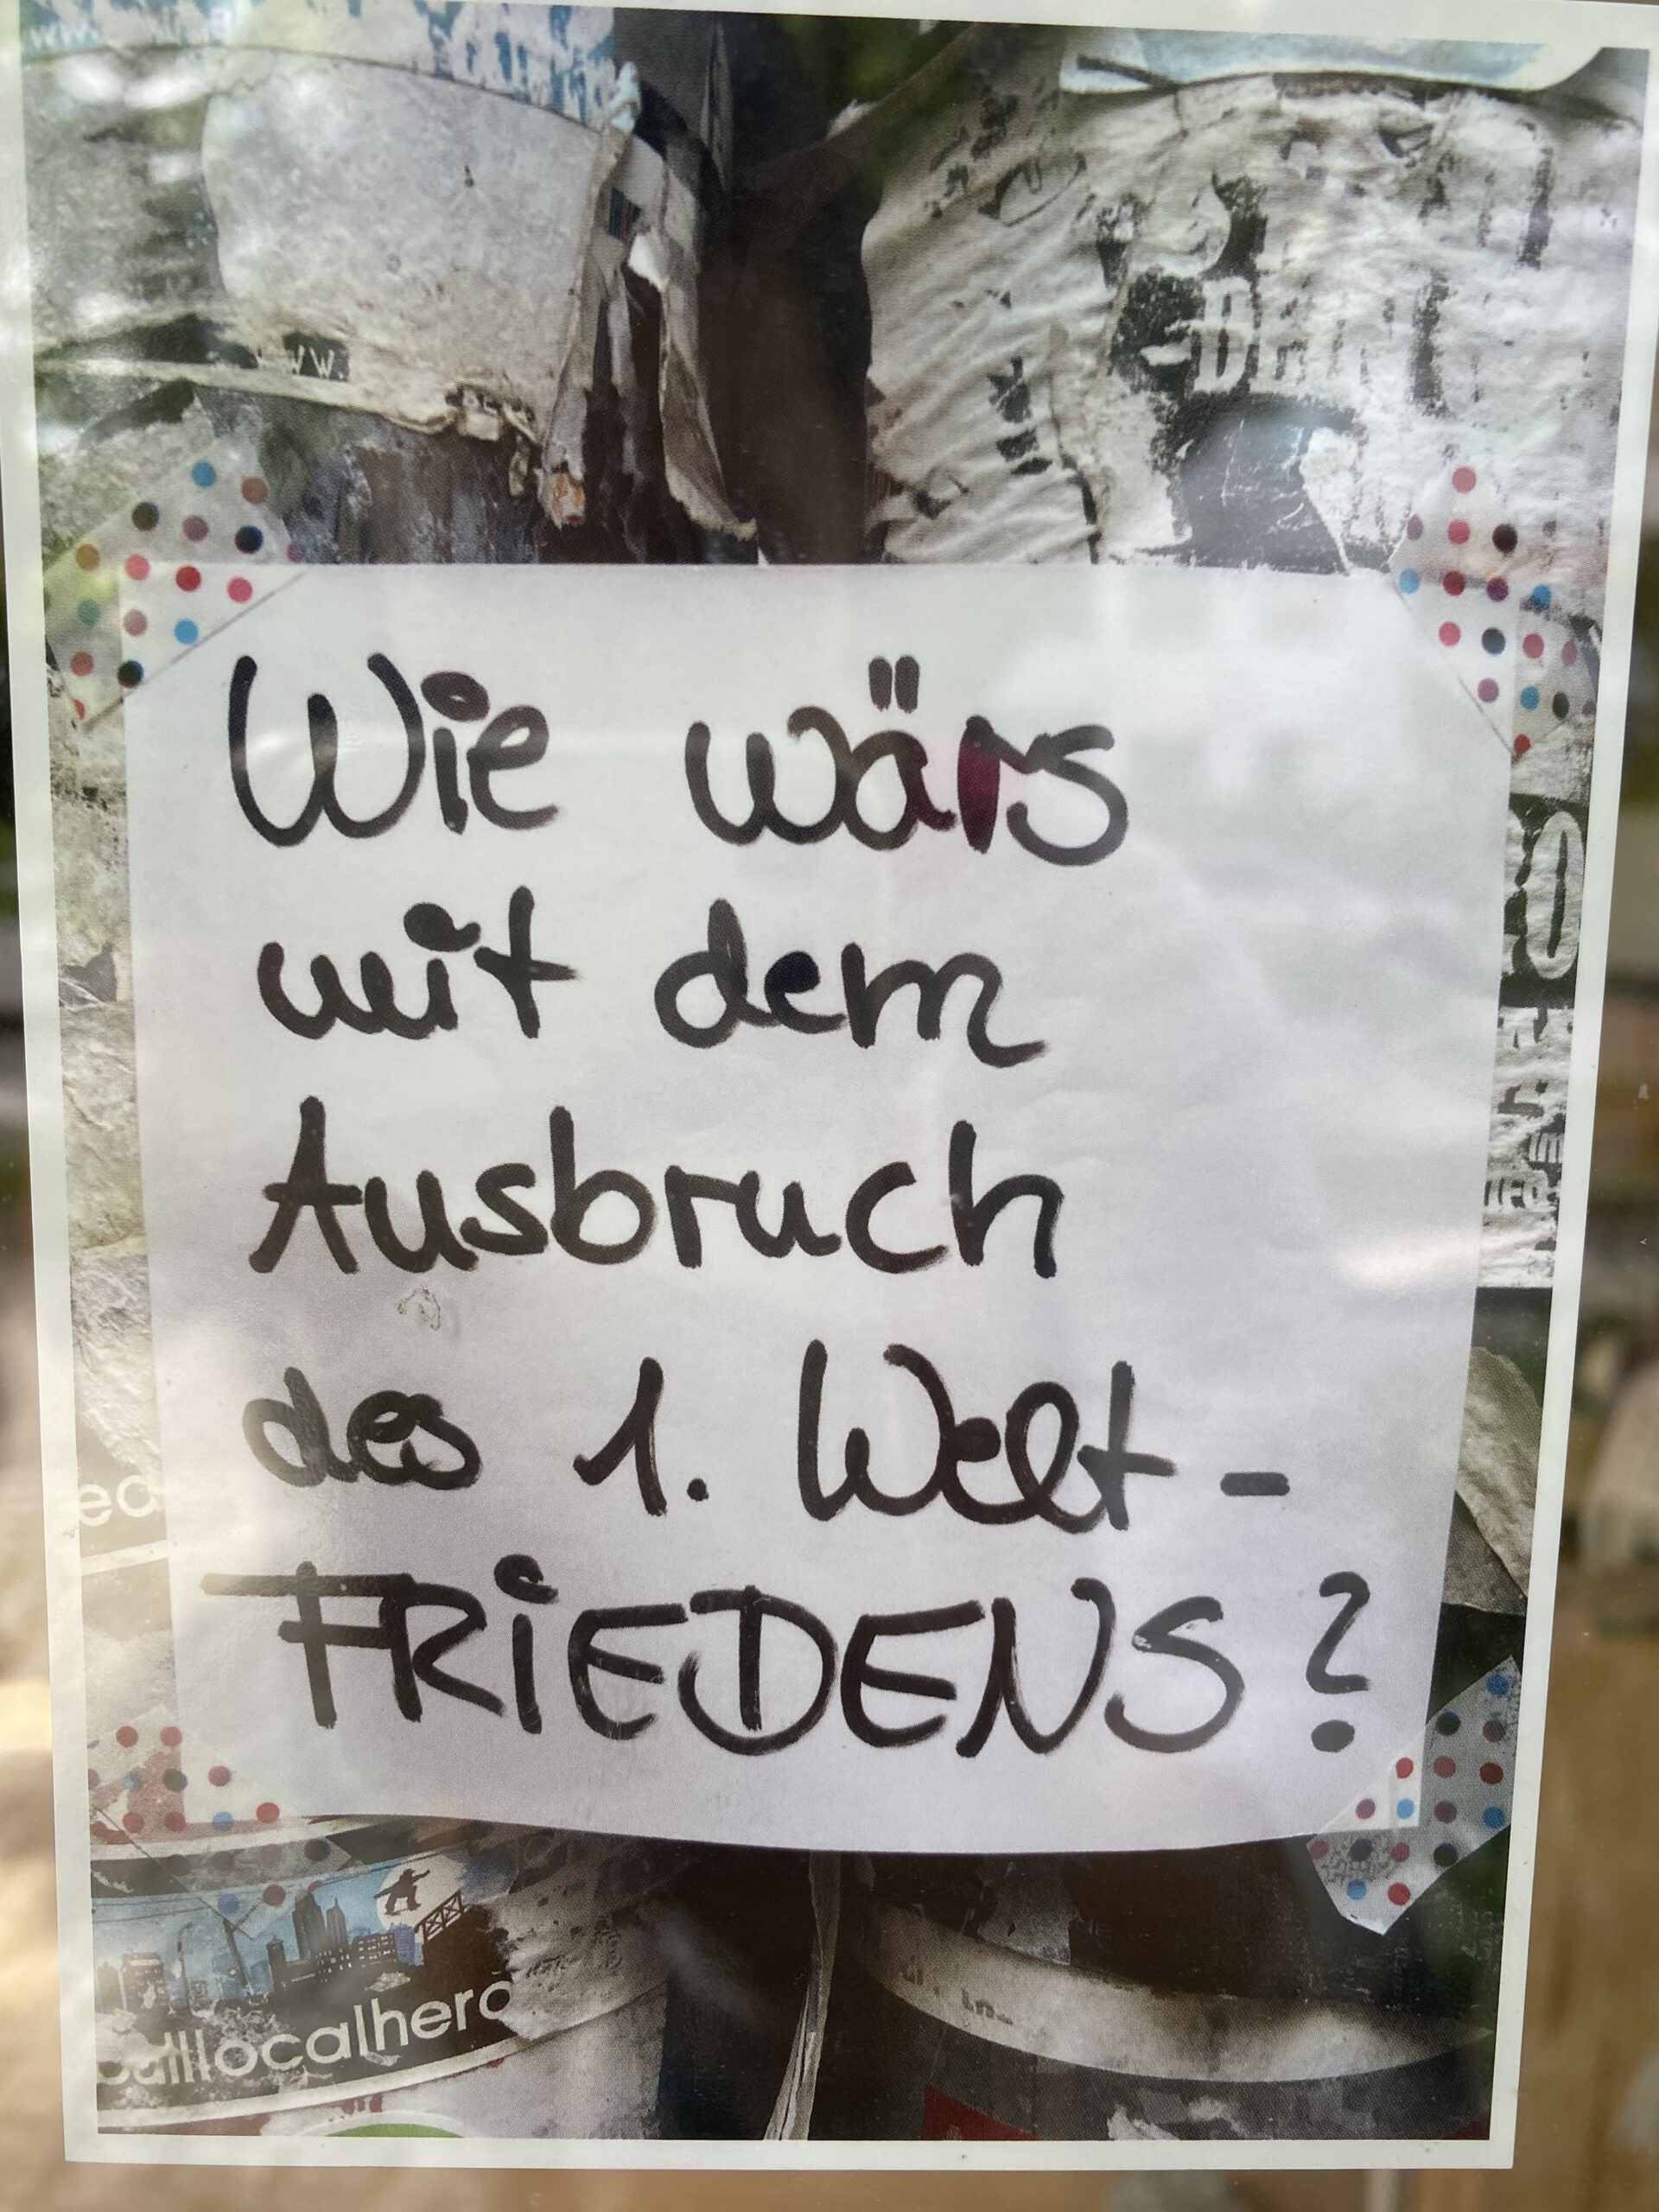 www.
WW.
Wie wärs
mit dem
Ausbruch
des 1. Welt-
FRiEDENS?
localhero